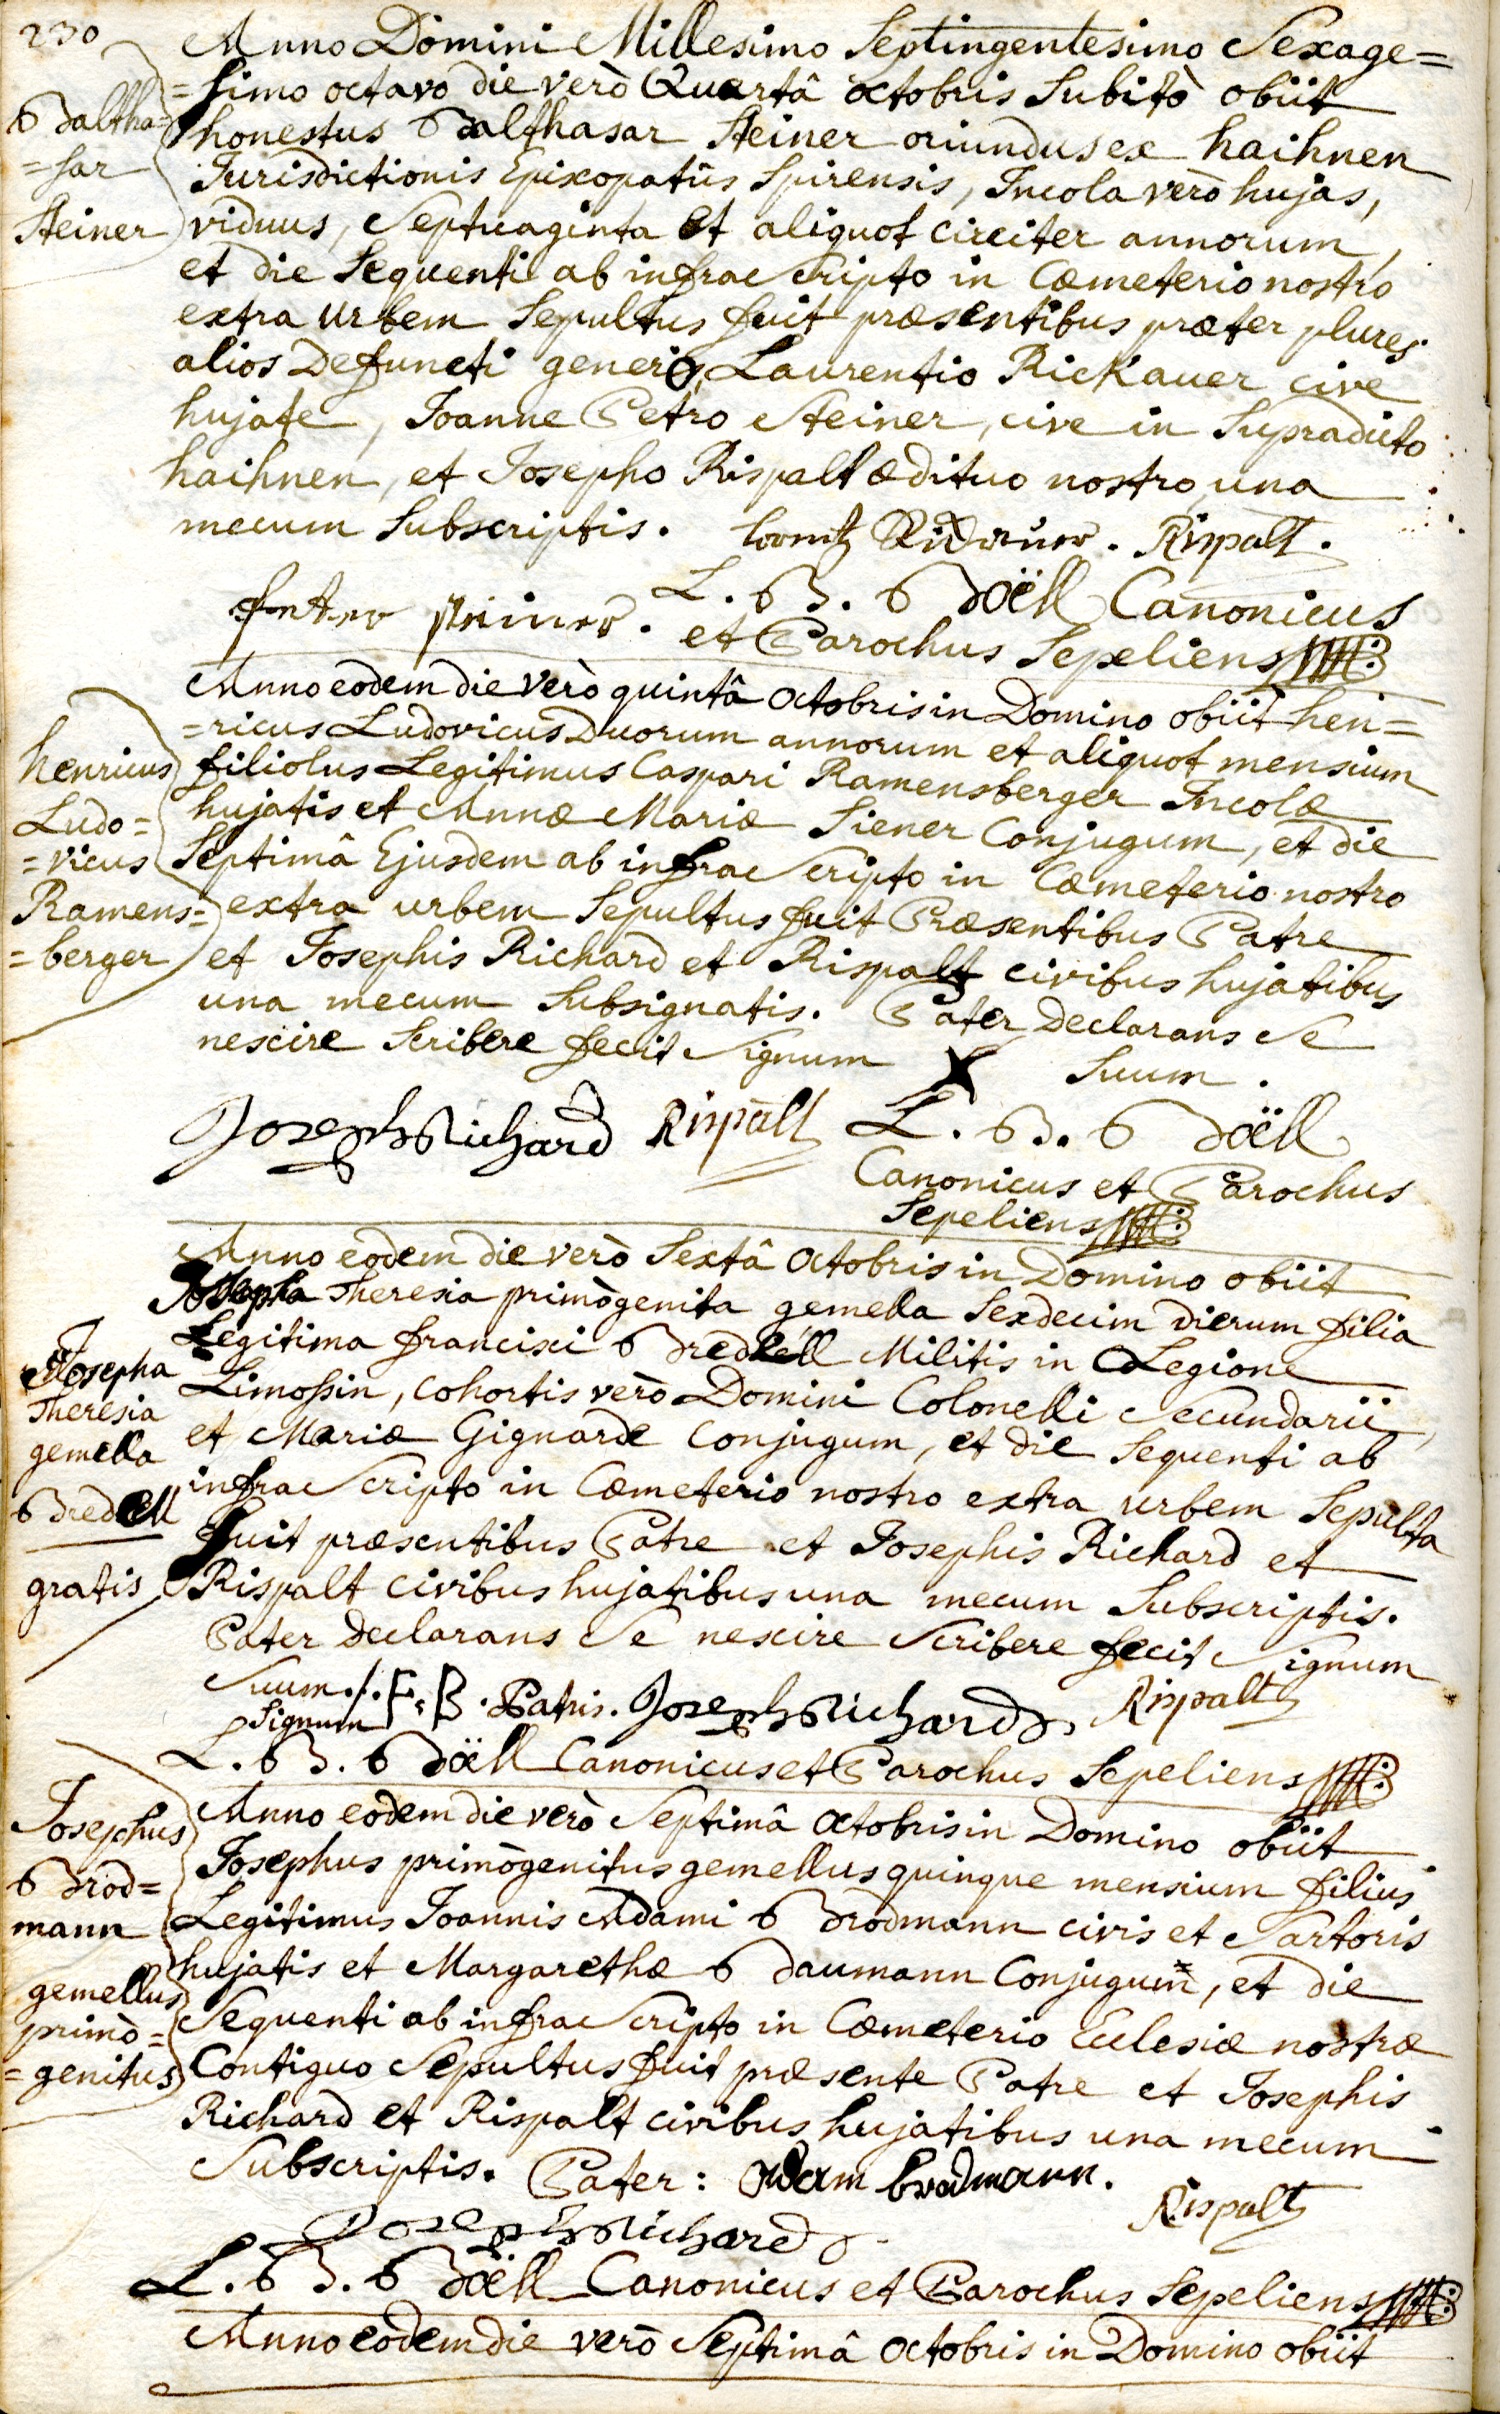 230
Anno Domini Millesimo Septingentesimo Sexage=
=simo octavo die verò Quartâ octobris Subitò obiit
Baltha=
=sar
Steiner
honestus Balthasar Steiner oriundus ex haihnen
Jurisdictionis Episcopatûs Spirensis, Incola verò hujas,
viduus, Septuaginta et aliquot circiter annorum,
et die Sequenti ab infrascripto in Cœmeterio nostro
extra urbem Sepultus fuit præsentibus præter plures
alios Defuncti generis, Laurentio Rickauer cive
hujate, Joanne Petro Steiner, cive in Supradicto
haihnen, et Josepho Rispalt ædituo nostro una
mecum Subscriptis. Rispalt.
L. B. Boëll Canonicus
et Parochus Sepeliens
Anno eodem die verò quintâ octobris in Domino obiit hen=
henricus
Ludo=
=vicus
Ramens=
=berger
=ricus Ludovicus Duorum annorum et aliquot mensium
filiolus Legitimus Caspari Ramensberger Incolæ
hujatis et Annæ Mariæ Siener Conjugum, et die
Septimâ Ejusdem ab infrascripto in Cœmeterio nostro
extra urbem Sepultus fuit Præsentibus Patre
et Josephis Richard et Rispalt civibus hujatibus
una mecum Subsignatis. Pater Declarans Se
nescire Scribere fecit Signum X Suum.
Joseph Richard Rispalt L. B. Boëll
Canonicus et Parochus
Sepeliens
Anno eodem die verò Sextâ octobris in Domino obiit
Josepha
Theresia
gemella
Bredell
gratis
Josepha Theresia primògenita gemella Sexdecim dierum filia
Legitima francisci Bredell Militis in Legione
Limossin, Cohortis verò Domini Colonelli Secundarii,
et Mariæ Gignarde Conjugum, et die Sequenti ab
infrascripto in Cœmeterio nostro extra urbem Sepulta
fuit præsentibus Patre et Josephis Richard et
Rispalt civibus hujatibus una mecum Subscriptis.
Pater declarans Se nescire Scribere fecit Signum
Suum./. F. B. Patris. Joseph Richard Rispalt
Signum
L. B. Boëll Canonicus et Parochus Sepeliens
Josephus
Brod=
mann
gemellus
primò=
=genitus
Anno eodem die verò Septimâ octobris in Domino obiit
Josephus primògenitus gemellus quinque mensium filius
Legitimus Joannis Adami Brodmann civis et Sartoris
hujatis et Margarethæ Baumann Conjugum, et die
Sequenti ab infrascripto in Cœmeterio Ecclesiæ nostræ
Contiguo Sepultus fuit præsente Patre et Josephis
Richard et Rispalt civibus hujatibus una mecum
Subscriptis. Pater: Adam brodmann. Rispalt
Joseph Richard
L. B. Boëll Canonicus et Parochus Sepeliens
Anno eodem die verò Septimâ octobris in Domino obiit